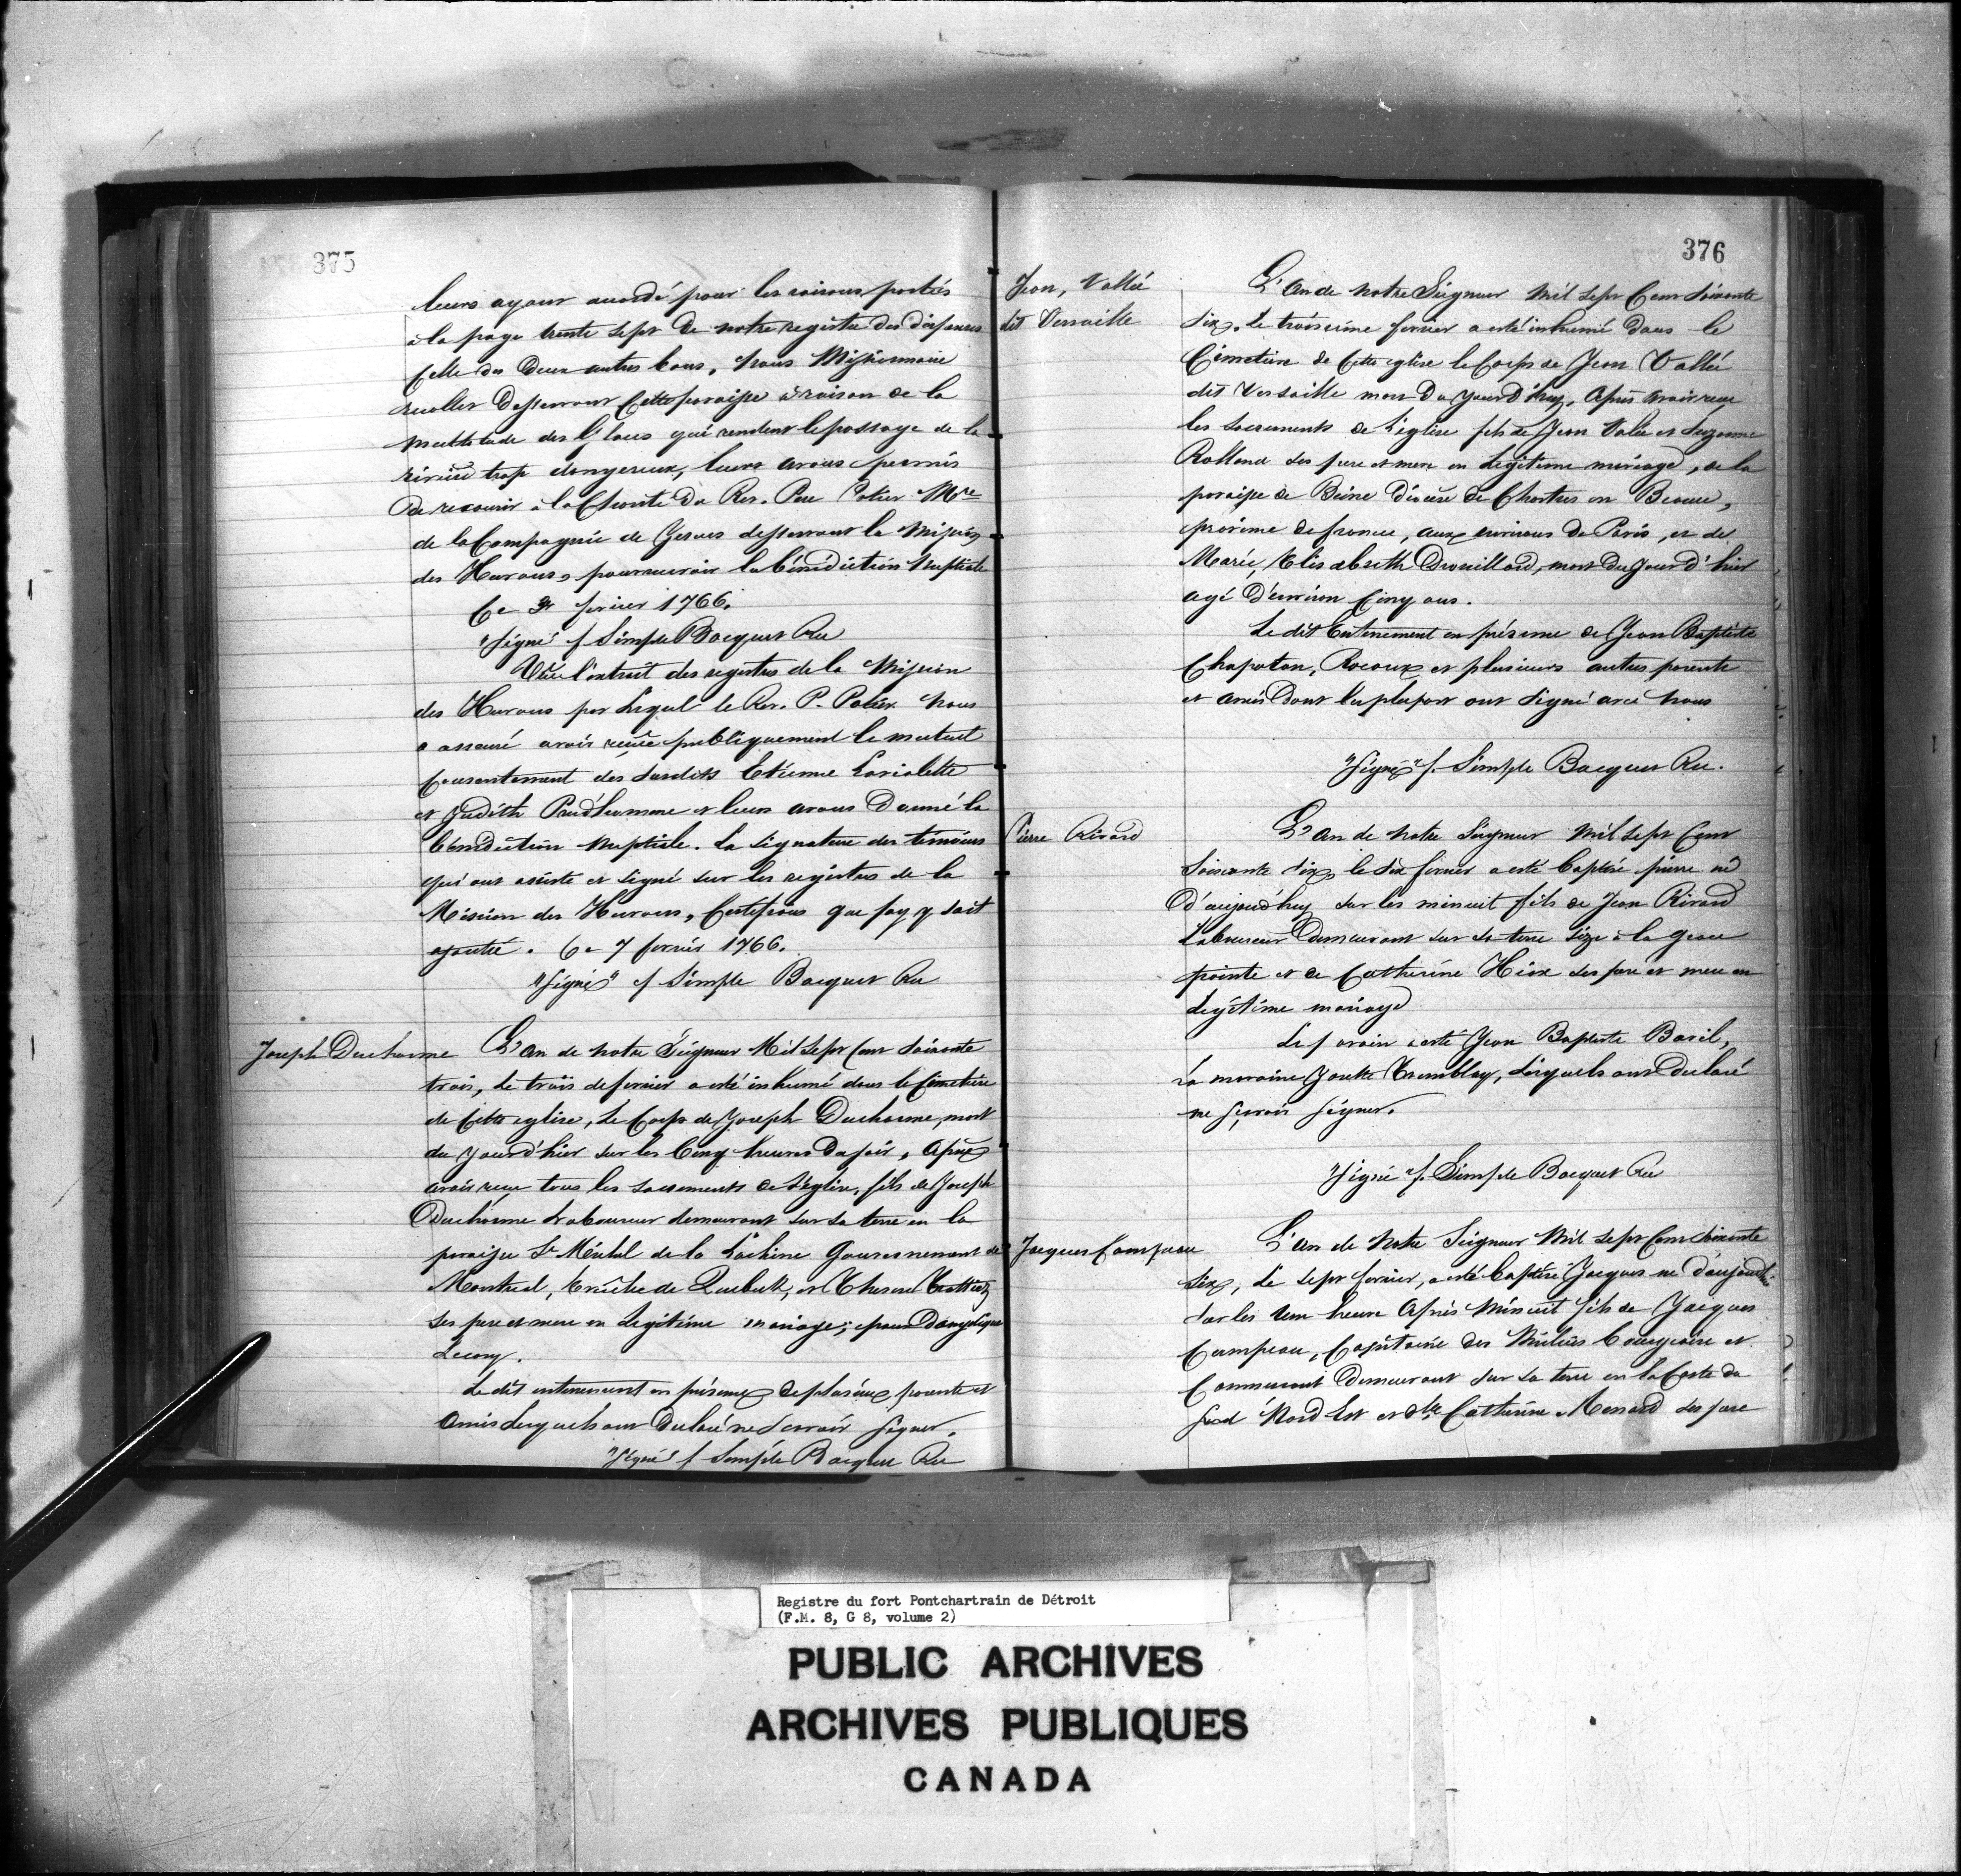 375
leurs ayant accordé pour les raisons portées
à la page trente sept de notre registre des dispenses
celle des deux autres bans, nous Missionnaire
recollet desservant cette paroisse à raison de la
multitude des glaces qui rendent le passage de la
rivière trop dangereux, leurs avons permis
de recourir à la Charité du Rev. Pere Potier Mre
de la Compagnie de Jesus desservant la Mission
des Hurons, pour recevoir la bénédiction nuptiale
Ce 3 fevrier 1766.
"Signé" f Simple Bocquet Rec
Vüe l'extrait des registres de la Mission
des Hurons par lequel le Rev. P. Potier nous
a assuré avoir reçüe publiquement le mutuel
consentement des susdits Etienne Laviolette
et Judith Prud'homme et leurs avons donné la
bénédiction nuptiale. La signature des témoins
qui ont assisté et signé sur les registres de la
Mission des Hurons, Certifions que foy y soit
ajoutée. Ce 7 fevrier 1766.
"Signé" f Simple Bocquet Rec
Joseph Ducharme L'an de notre Seigneur Mil sept Cent soixante
trois, Le trois de fevrier a esté inhumé dans le Cimetiere
de Cette eglise, Le Corps de Joseph Ducharme, mort
du jour d'hier sur les Cinq heures du soir, Après
avoir reçu tous les sacrements de L'eglise, fils de Joseph
Ducharme Laboureur demeurant sur sa terre en la
paroisse St Michel de la Lachine Gouvernement de
Montreal, Eveché de Quebek, et Therese Trottier
ses pere et mere en Legitime mariage; epoux d'angelique
Lecuy.
Le dit enterrement en présence de plusieurs parents et
Amis Lesquels ont declaré ne scavoir signer.
"Signé" f Simple Bocquet Rec
376
Jean, Vallée
dit Versaille
L'An de notre Seigneur Mil sept Cent soixante
Six, le troisieme fevrier a esté inhumé dans le
Cimetiere de Cette eglise le Corps de Jean Vallée
dit Versaille mort du jour d'huy, Après avoir reçu
les sacrements de L'eglise fils de Jean Valée et Suzanne
Rolland ses pere et mere en Legitime mariage, de la
paroisse de Beine diocèse de Chartres en Beauce,
province de france, aux environs de Paris, et de
Marie, Elisabeth Drouillard, mort du jour d'hier
agé d'environ Cinq ans.
Le dit Enterrement en présence de Jean Baptiste
Chapoton, Rocoux et plusieurs autres parents
et amis dont la plupart ont signé avec nous
"Signé" f. Simple Bocquet Rec.
Pierre Rivard
L'an de notre Seigneur Mil sept Cent
Soixante Six, le six fevrier a esté baptisé pierre né
d'aujourd'huy sur les minuit fils de Jean Rivard
Laboureur demeurant sur sa terre size à la grose
pointe et de Catherine Yax ses pere et mere en
Legitime mariage
Le parain a esté Jean Baptiste Baril,
La maraine Josette Tremblay, Lesquels ont declaré
ne sçavoir signer.
"Signé" f. Simple Bocquet Rec
Jacques Campeau
L'an de notre Seigneur Mil sept Cent soixante
Six, Le sept fevrier, a esté baptisé Jacques né d'aujourd'hui
sur les une heure Après Minuit fils de Jacques
Campeau, Capitaine des Milices bourgeoise et
Commerçant demeurant sur sa terre en la Coste du
sud Nord Est et de Catherine Menard ses pere
Registre du fort Pontchartrain de Détroit
(F.M. 8, G 8, volume 2)
PUBLIC ARCHIVES
ARCHIVES PUBLIQUES
CANADA